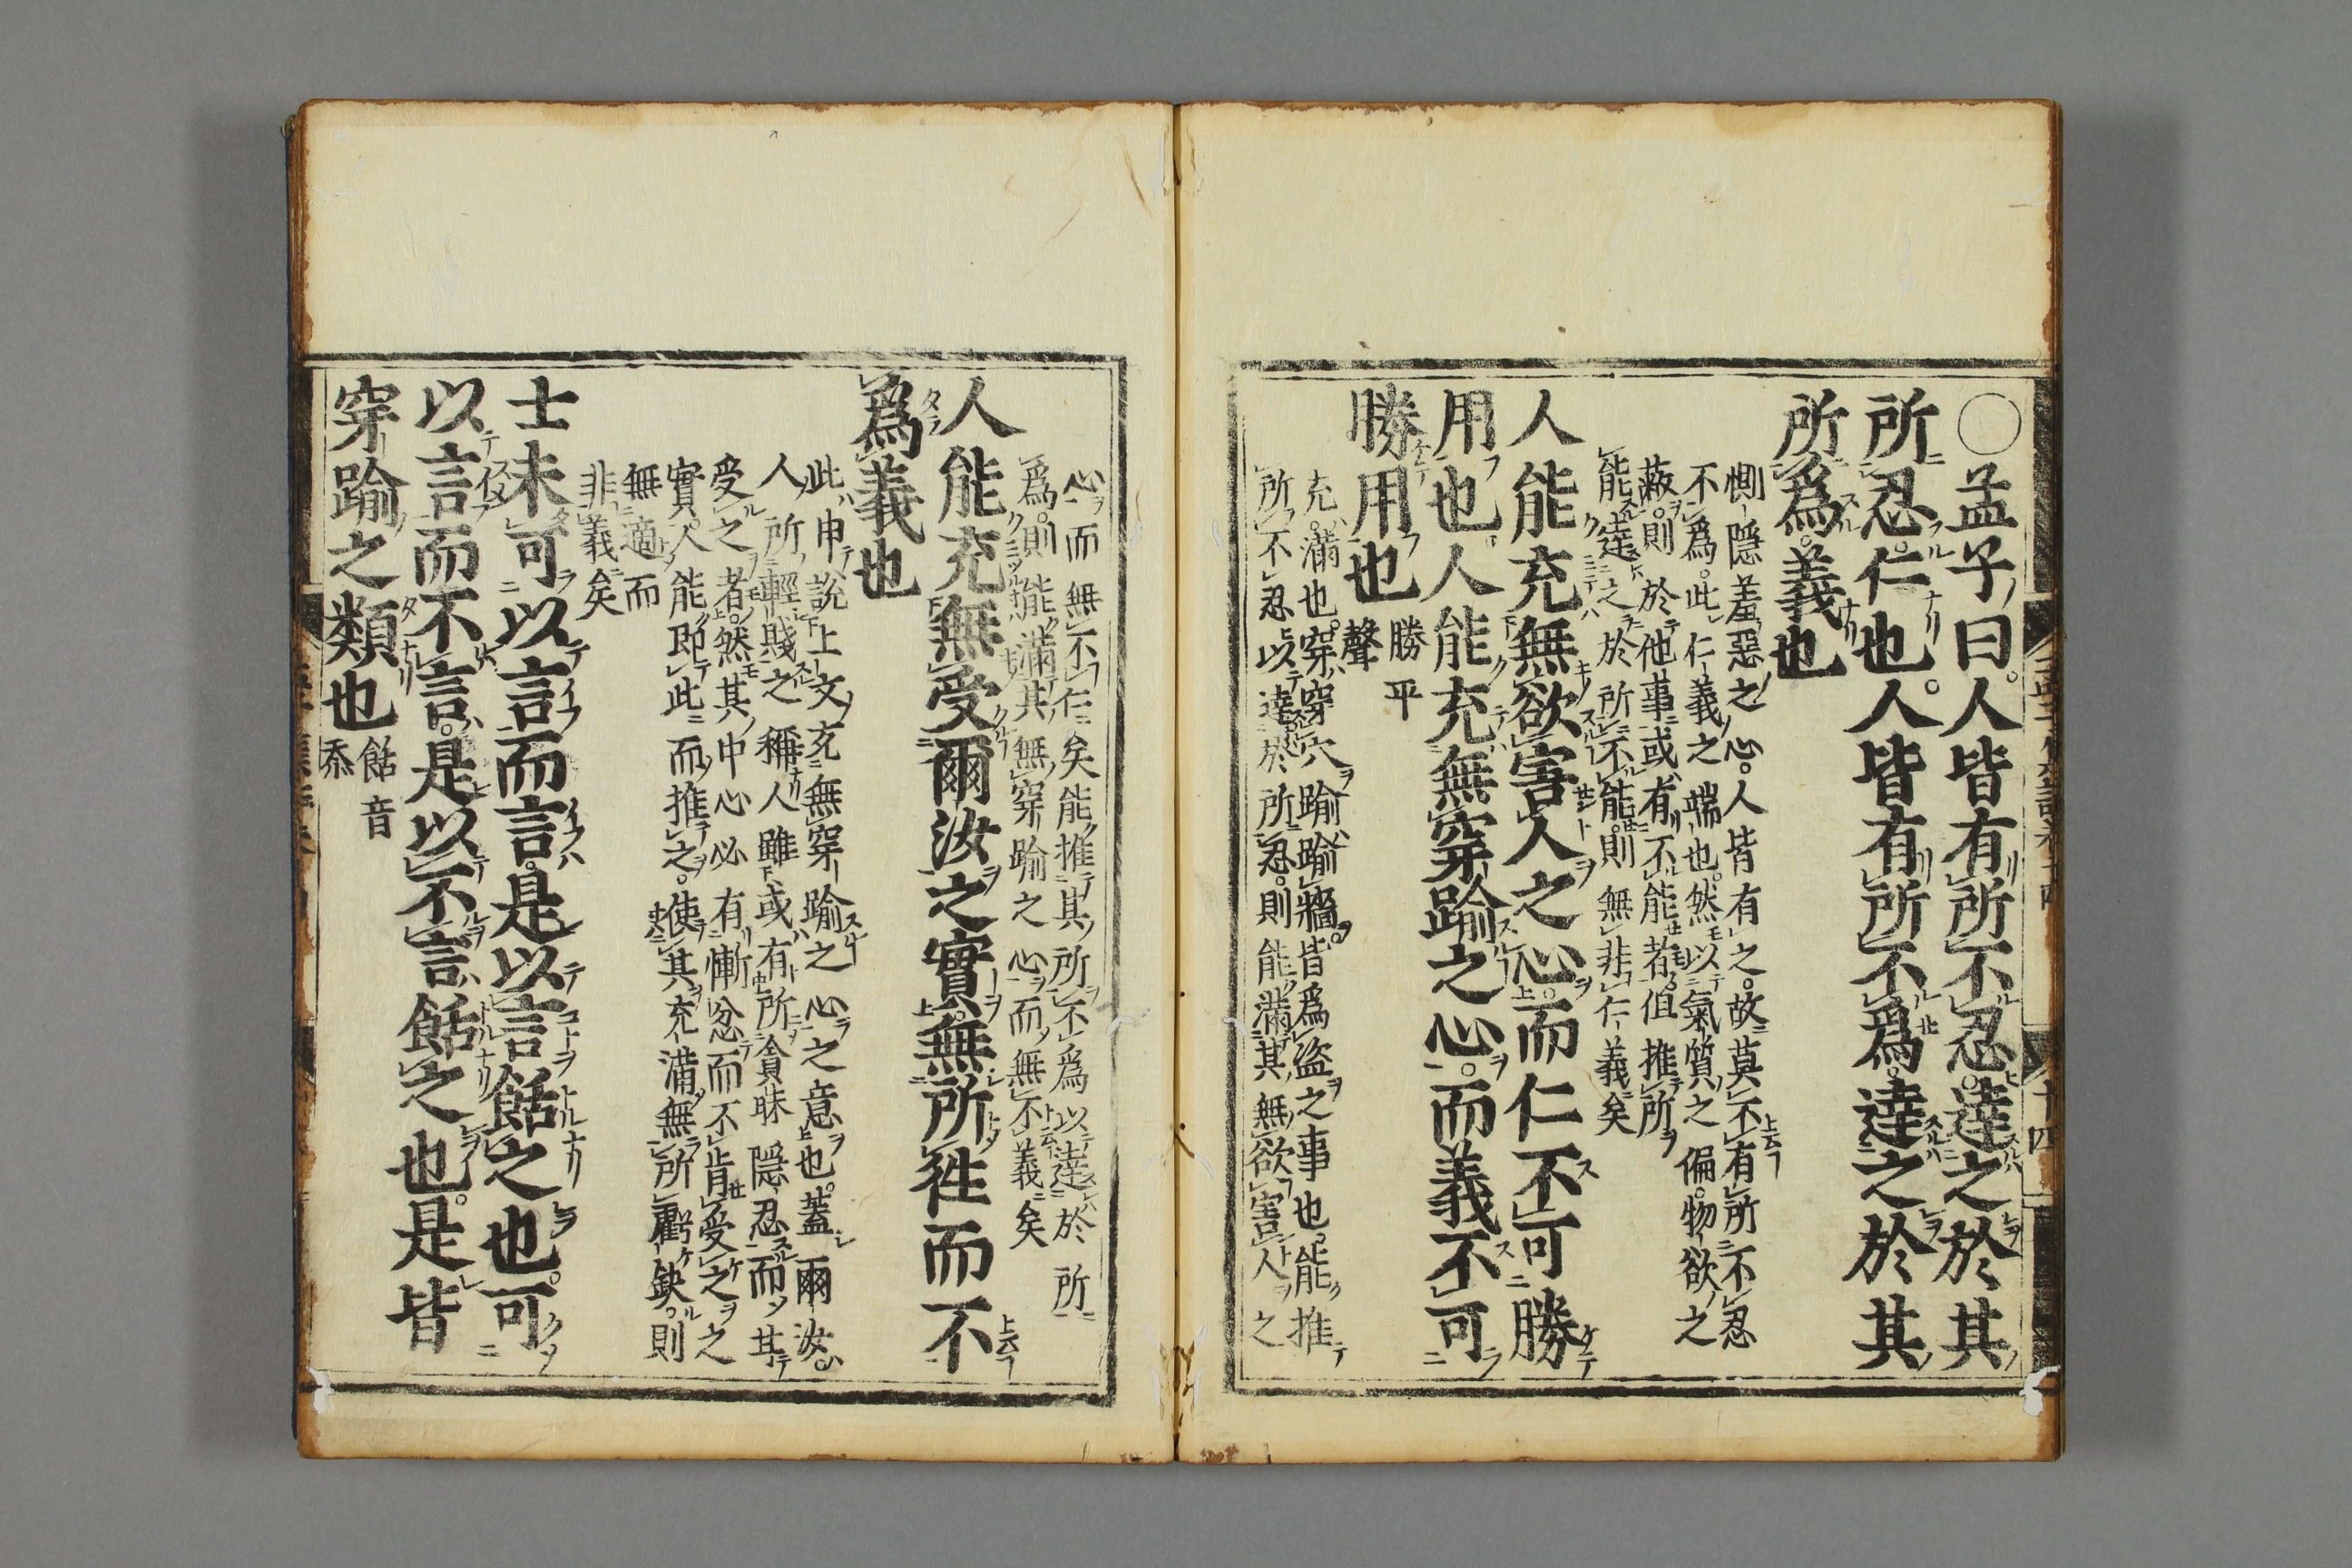 ○孟子曰。人皆有所不忍。達之於其
所忍。仁也。人皆有所不爲。達之於其
所爲。義也
惻隱羞惡之心。人皆有之。故莫不有所不忍
不爲。此仁義之端也。然以氣質之偏。物欲之
蔽。則於他事或有不能者。但推所
能達之於所不能。則無非仁義矣
人能充無欲害人之心。而仁不可勝
用也。人能充無穿踰之心。而義不可
勝用也
勝平
聲
充。滿也。穿。穿穴。踰。踰牆。皆爲盜之事也。能推
所不忍以達於所忍。則能滿其無欲害人之
心而無不仁矣能推其所不爲以達於所
爲。則能滿其無穿踰之心。而無不義矣
人能充無受爾汝之實。無所徃而不
爲義也
此申說上文充無穿踰之心之意也。蓋爾汝。
人所輕賤之稱人雖或有所貪昧隱忍而甘
受之者。然其中心必有慚忿而不肯受之之
實。人能即此而推之。使其充滿無所虧缺。則
無適而
非義矣
士未可以言而言。是以言餂之也。可
以言而不言。是以不言餂之也。是皆
穿踰之類也
餂音
忝
十四